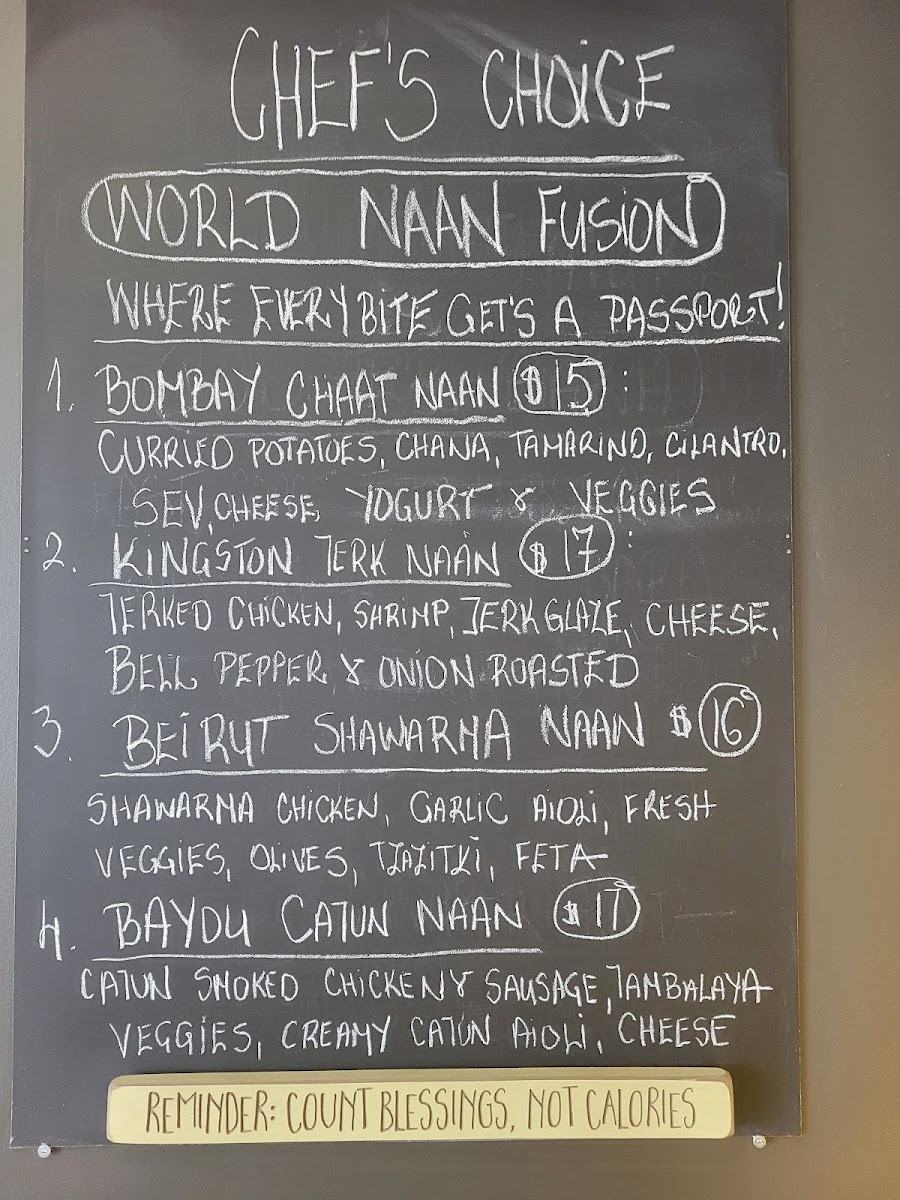 CHEF'S CHOICE
WORLD NAAN FUSION
WHERE EVERY BITE GET'S A PASSPORT!
1. BOMBAY CHAAT NAAN $15:
CURRIED POTATOES, CHANA, TAMARIND, CILANTRO,
SEV, CHEESE, YOGURT & VEGGIES
2. KINGSTON JERK NAAN $17:
JERKED CHICKEN, SHRIMP, JERK GLAZE, CHEESE,
BELL PEPPER & ONION ROASTED
3. BEIRUT SHAWARMA NAAN $16
SHAWARMA CHICKEN, GARLIC AIOLI, FRESH
VEGGIES, OLIVES, TZAZITKI, FETA
4. BAYOU CAJUN NAAN $17
CAJUN SMOKED CHICKEN & SAUSAGE, JAMBALAYA
VEGGIES, CREAMY CAJUN AIOLI, CHEESE
REMINDER: COUNT BLESSINGS, NOT CALORIES